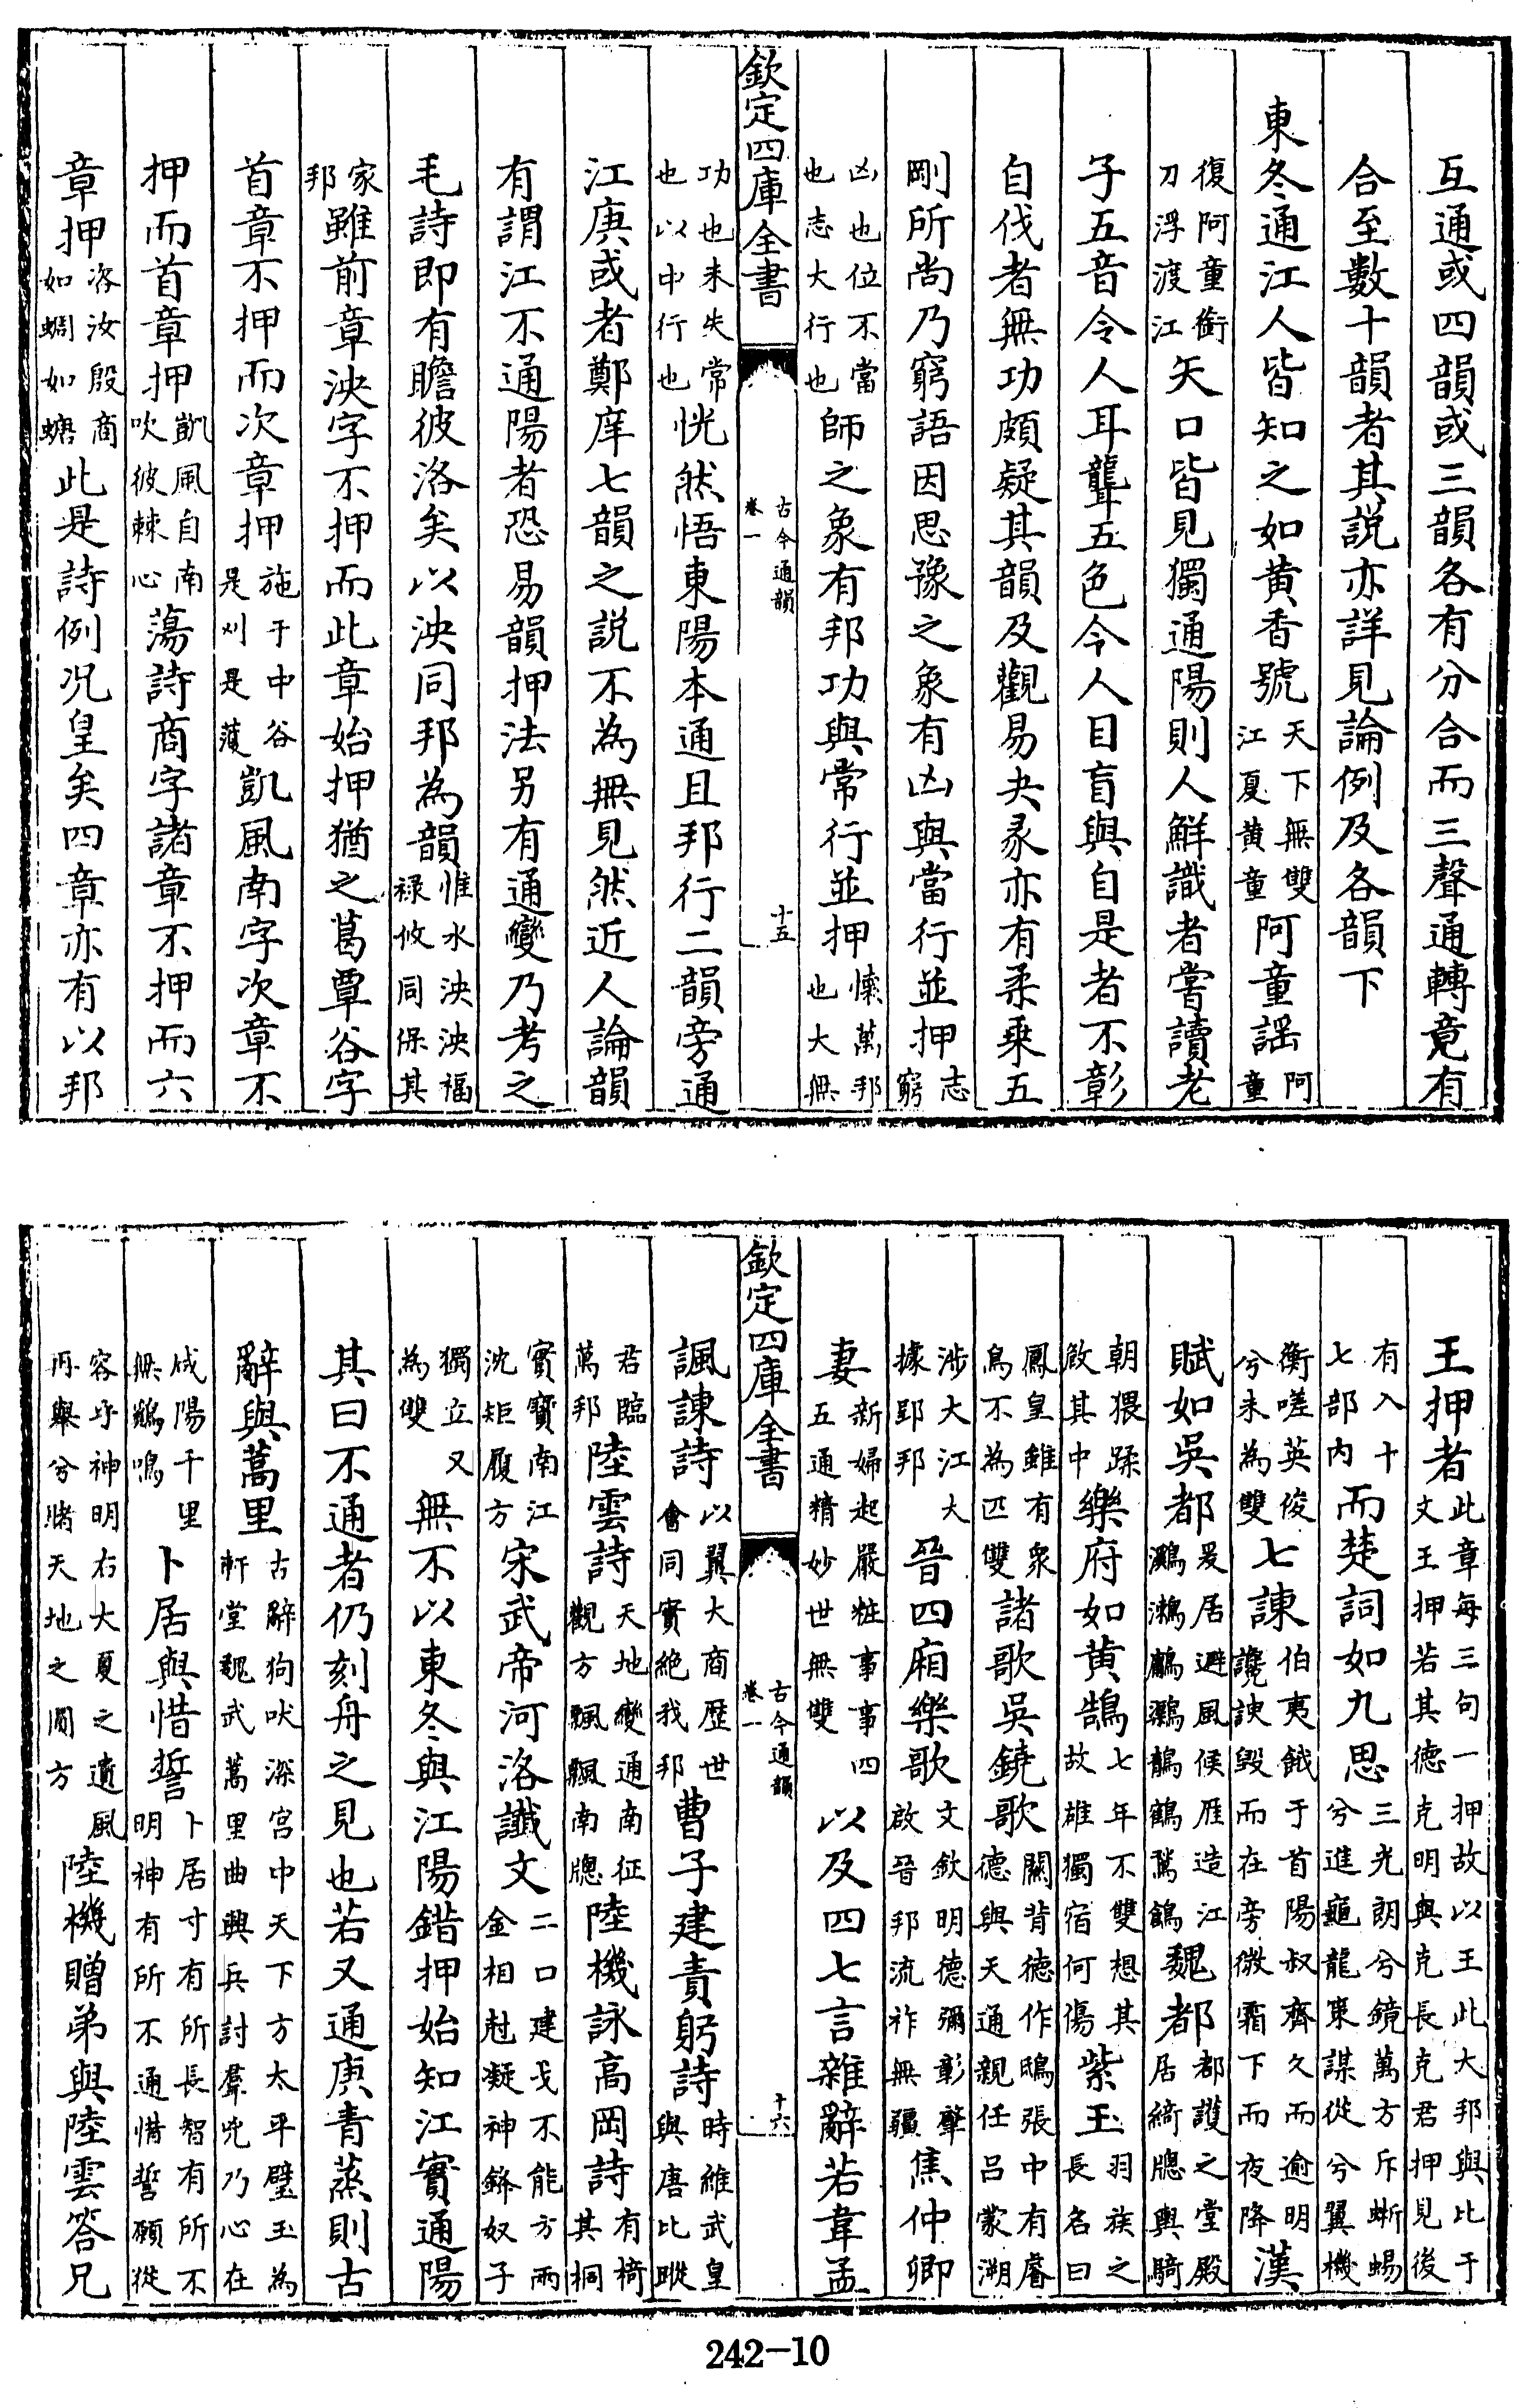 互通或四韻或三韻各有分合而三聲通轉竟有
合至數十韻者其説亦詳見論例及各韻下
東冬通江人皆知之如黄香號天下無雙江夏黄童阿童謡阿童
復阿童銜刀浮渡江矢口皆見獨通陽則人鮮識者嘗讀老
子五音令人耳聾五色令人目盲與自是者不彰
自伐者無功頗疑其韻及觀易夬彖亦有柔乗五
剛所尚乃窮語因思豫之象有凶與當行並押志窮
凶也位不當也志大行也師之象有邦功與常行並押懷萬邦也大無
功也未失常也以中行也恍然悟東陽本通且邦行二韻旁通
江庚或者鄭庠七韻之説不為無見然近人論韻
有謂江不通陽者恐易韻押法另有通變乃考之
毛詩即有瞻彼洛矣以泱同邦為韻惟水泱泱福禄攸同保其
家邦雖前章泱字不押而此章始押猶之葛覃谷字
首章不押而次章押施于中谷是刈是濩凱風南字次章不
押而首章押凱風自南吹彼棘心蕩詩商字諸章不押而六
章押咨汝殷商如蜩如螗此是詩例况皇矣四章亦有以邦
欽定四庫全書
古今通韻
卷一
十五
王押者此章每三句一押故以王此大邦與比于文王押若其德克明與克長克君押見後
有入十七部内而楚詞如九思三光朗兮鏡萬方斥蜥蜴兮進龜龍策謀從兮翼機
衡嗟英俊兮未為雙七諫伯夷餓于首陽叔齊久而逾明讒諛毀而在旁微霜下而夜降漢
賦如吳都爰居避風候雁造江鸂鶒鷛鶏鶄鶴鶖鶬魏都都護之堂殿居綺牎輿騎
朝猥蹂敞其中樂府如黄鵠七年不雙想其故雄獨宿何傷紫玉羽族之長名曰
鳳皇雖有衆鳥不為匹雙諸歌吳鐃歌關背德作鴟張中有睿德與天通親任吕蒙溯
涉大江大據郢邦晉四廂樂歌文欽明德彌彰肇啟晉邦流祚無疆焦仲卿
妻新婦起嚴粧事事四五通精妙世無雙以及四七言雜辭若韋孟
諷諫詩以翼大商歷世會同實絶我邦曹子建責躬詩時維武皇與唐比蹤
君臨萬邦陸雲詩天地變通南征觀方飄飄南牎陸機詠高岡詩有椅其桐
實寳南江沈矩履方宋武帝河洛讖文二口建戈不能方兩金相尅凝神鋒奴子
獨立又為雙無不以東冬與江陽錯押始知江實通陽
其曰不通者仍刻舟之見也若又通庚青蒸則古
辭與蒿里古辭狗吠深宫中天下方太平璧玉為軒堂魏武蒿里曲興兵討羣兇乃心在
咸陽千里無鷄鳴卜居與惜誓卜居寸有所長智有所不明神有所不通惜誓願從
容乎神明右大夏之遺風再舉兮睹天地之圜方陸機贈弟與陸雲答兄
欽定四庫全書
古今通韻
卷一
十六
242-10